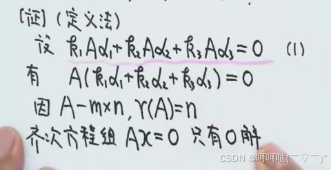 [证] (定义法)
设 k₁Aα₁+k₂Aα₂+k₃Aα₃=0 (1)
有 A(k₁α₁+k₂α₂+k₃α₃)=0
因 A-m×n, r(A)=n
齐次方程组 Ax=0 只有0解
CSDN @呵呵哒(￣▽￣)"